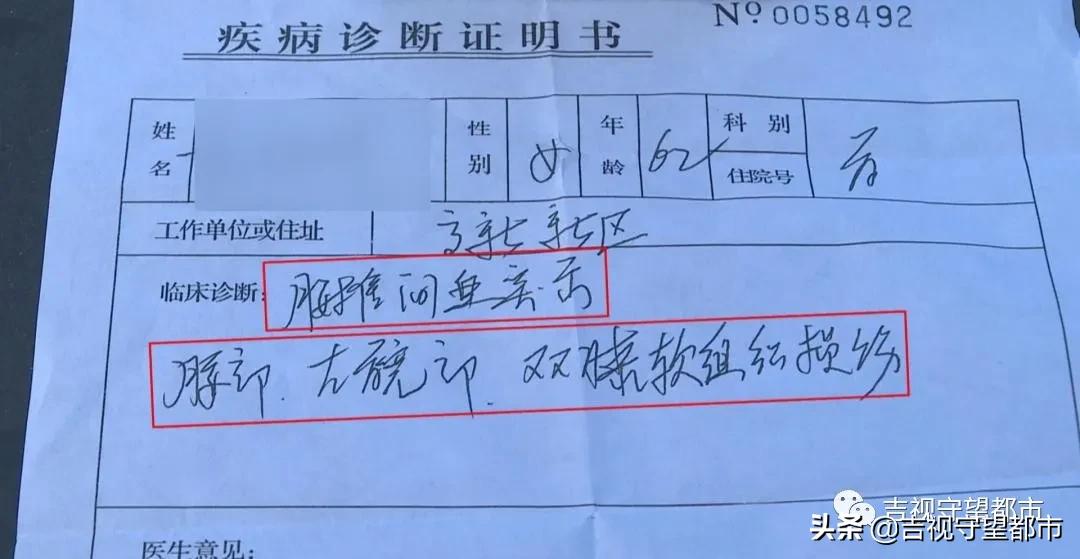 No.0058492
疾病诊断证明书
姓名 性别 女 年龄 62 科别 骨
住院号
工作单位或住址 高新新区
临床诊断: 腰椎间盘突出
腰部.左髋部.双膝软组织损伤
医生意见:
吉视守望都市
头条@吉视守望都市